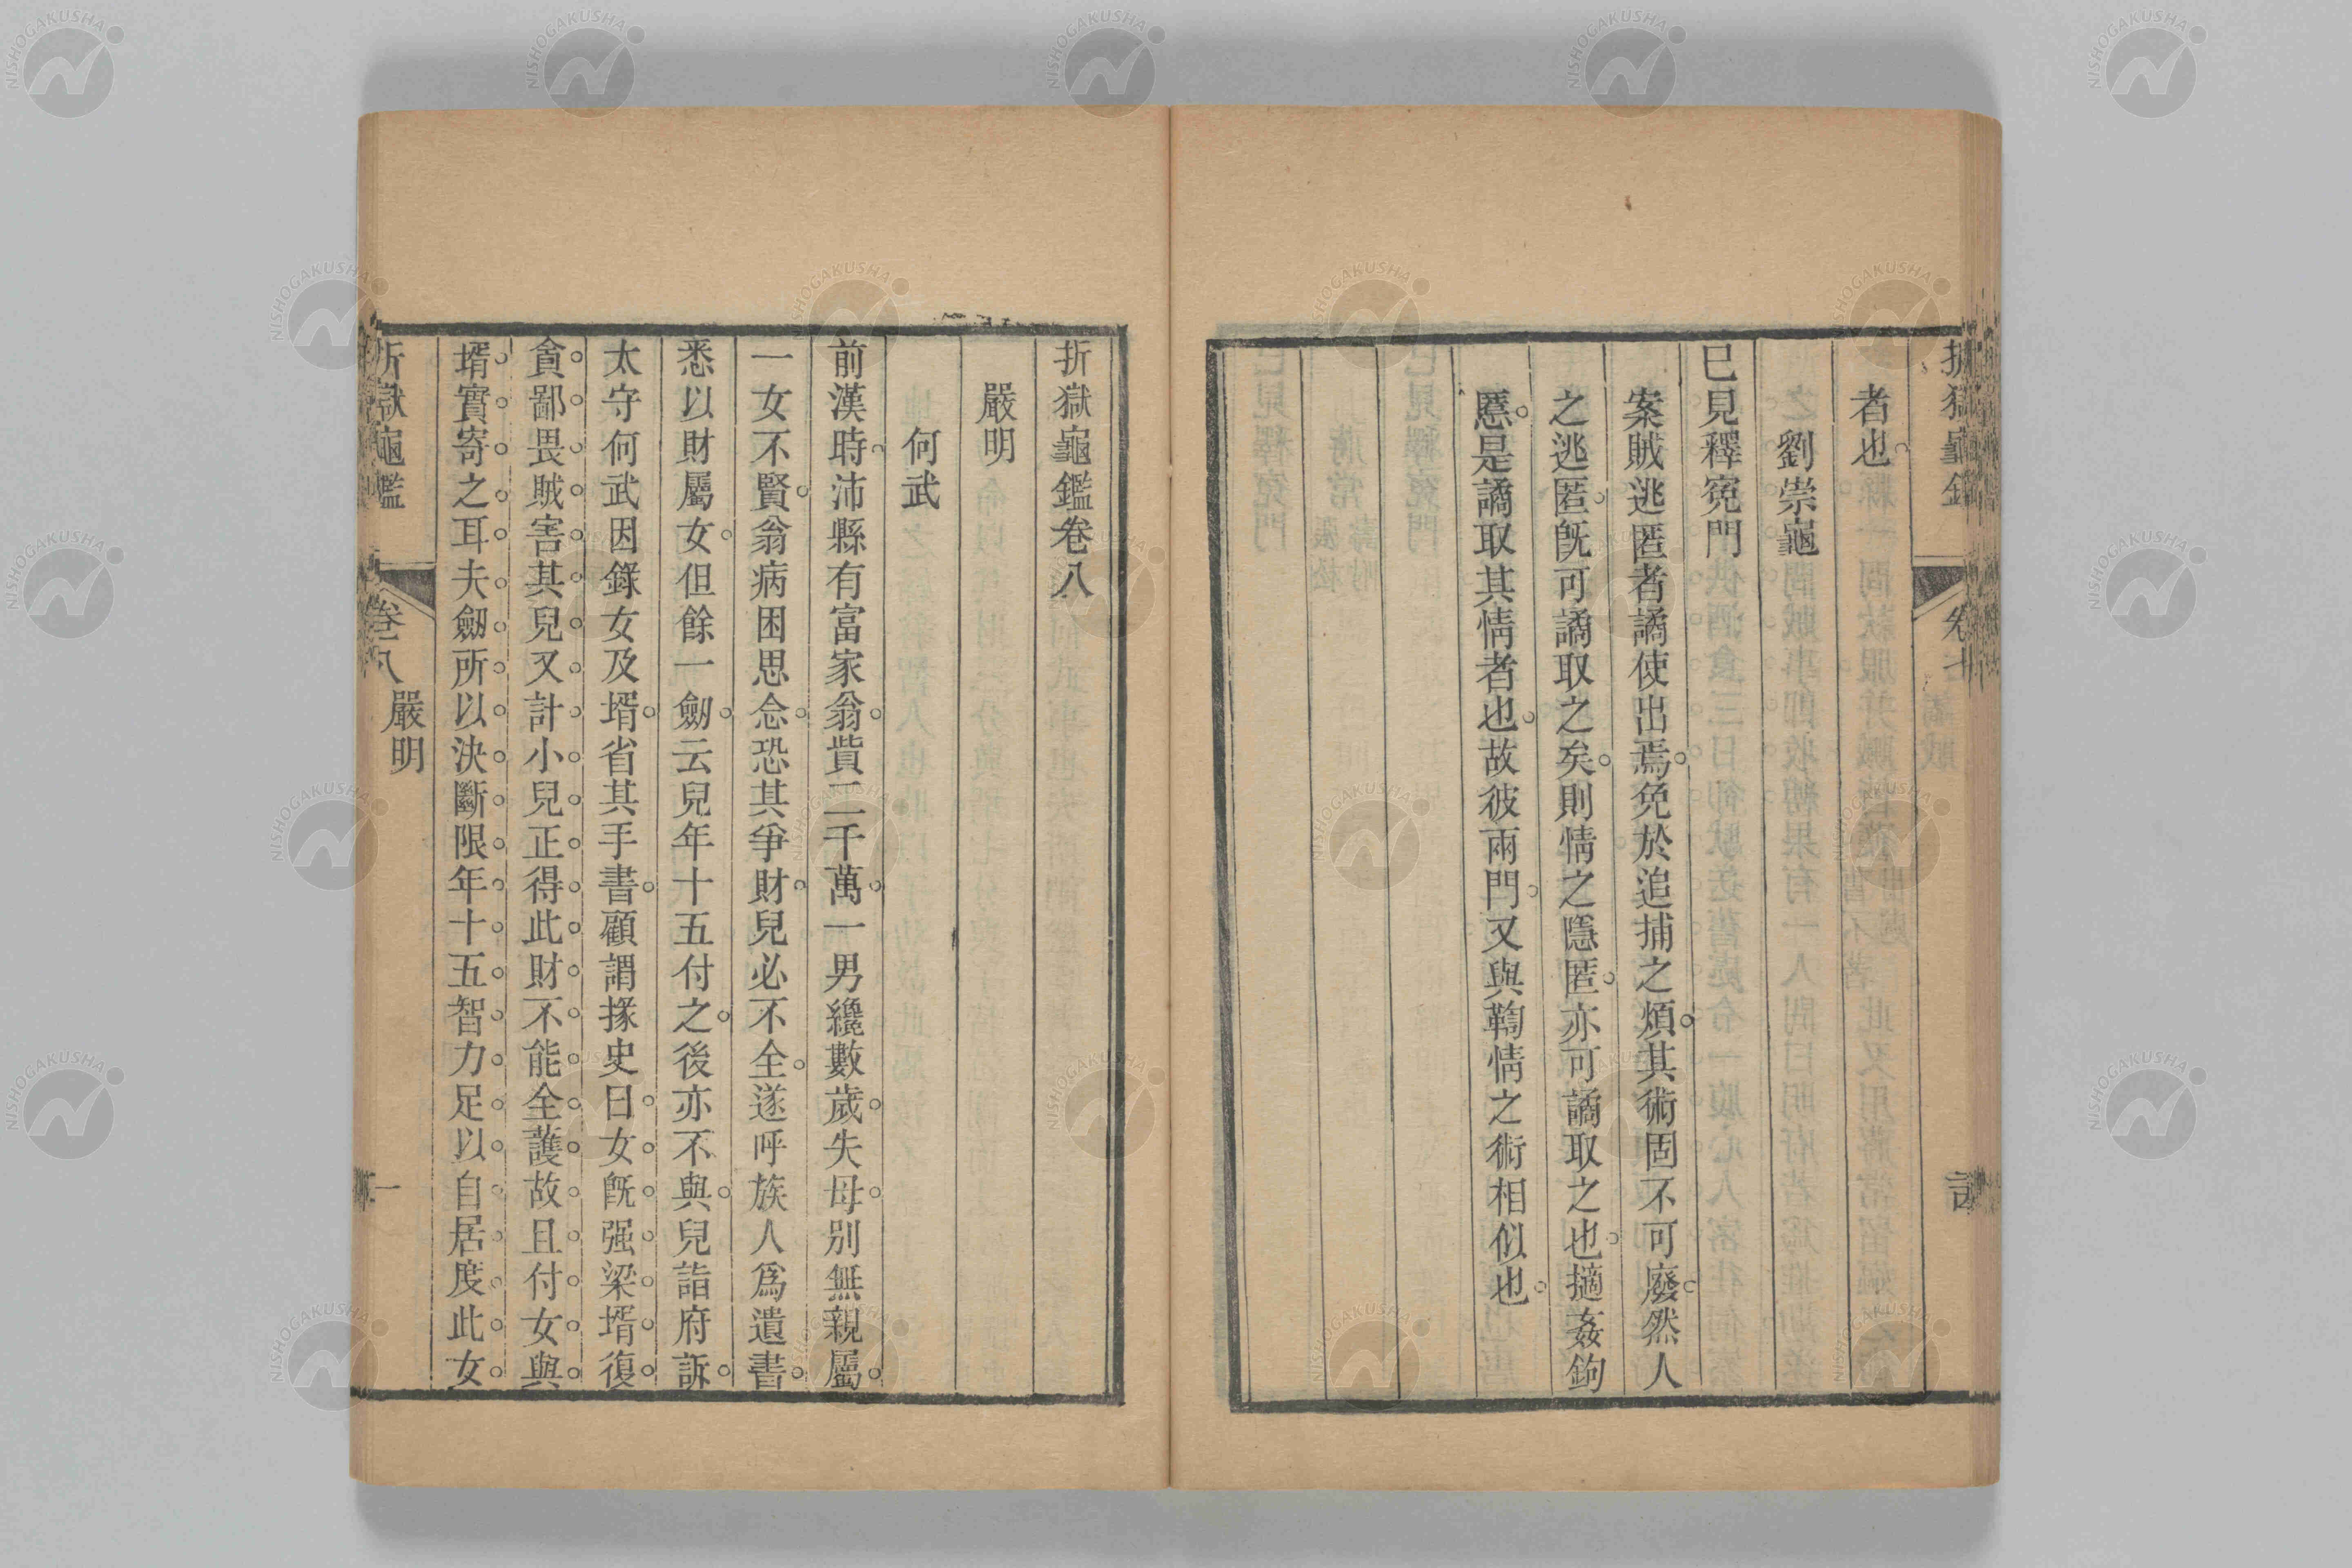 者也。
劉崇龜
已見釋冤門
案賊逃匿者譎使出焉。免於追捕之煩。其術固不可廢。然人
之逃匿。旣可譎取之矣。則情之隱匿。亦可譎取之也。擿姦鉤
慝。是譎取其情者也。故彼兩門。又與鞫情之術相似也。
折獄龜鑑卷八
嚴明
何武
前漢時。沛縣有富家翁。貲二千萬。一男纔數歲。失母。別無親屬。
一女不賢。翁病困思念。恐其爭財。兒必不全。遂呼族人爲遺書。
悉以財屬女。但餘一劒。云兒年十五付之。後亦不與。兒詣府訴。
太守何武因錄女及壻。省其手書。顧謂掾史曰。女旣强梁。壻復
貪鄙。畏賊害其兒。又計小兒正得此財。不能全護。故且付女與
壻。實寄之耳。夫劒。所以決斷。限年十五。智力足以自居。度此女
折獄龜鑑
卷八
嚴明
一